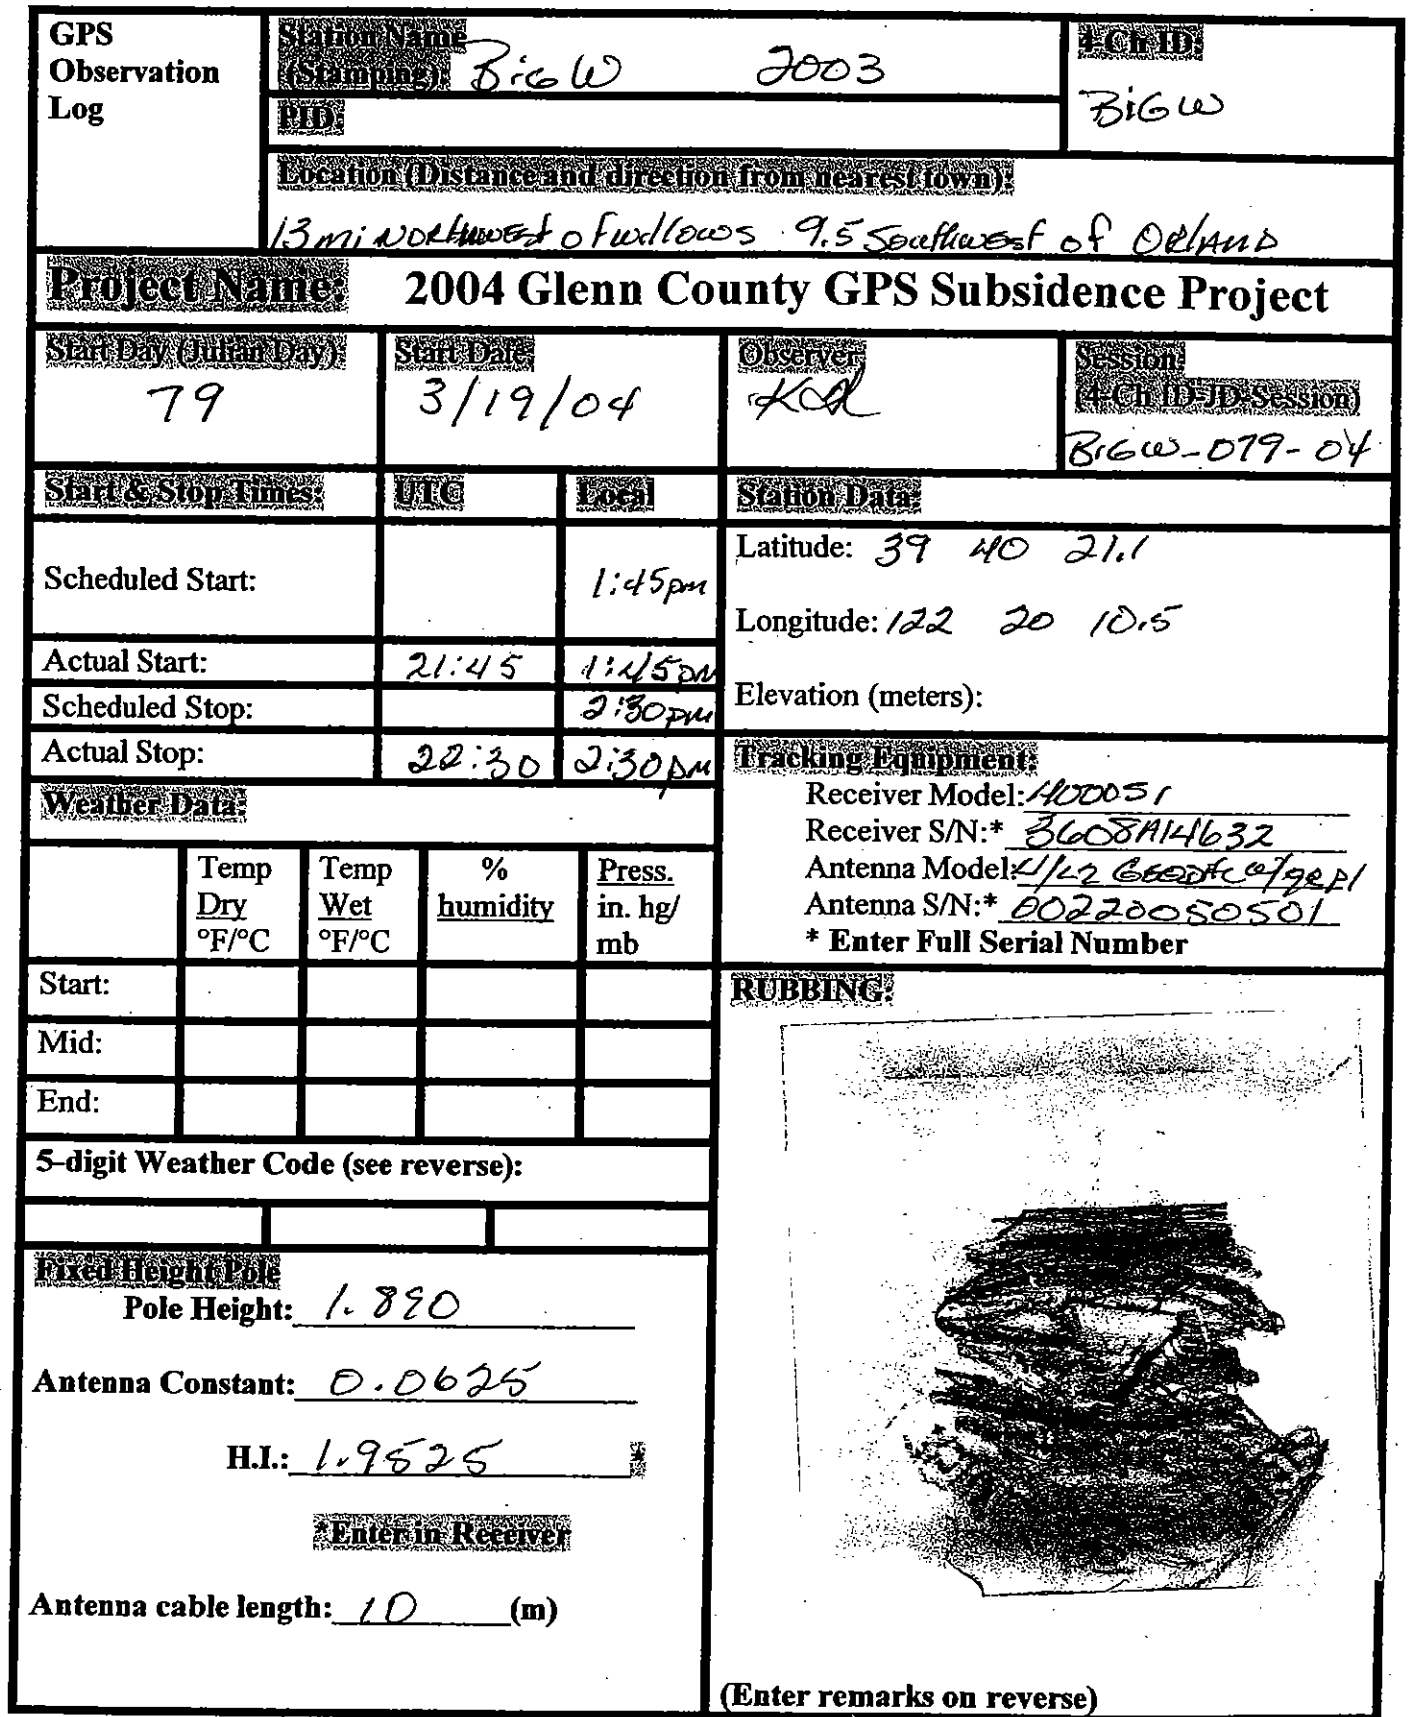 GPS
Observation
Log
Station Name
(Stamping): BiG W 2003
4-Ch ID:
BiGW
PID:
Location (Distance and direction from nearest town):
13 mi NORthwest of willows 9.5 Southwest of ORlAND
Project Name: 2004 Glenn County GPS Subsidence Project
Start Day (Julian Day):
79
Start Date
3/19/04
Observer
Session:
(4-Ch ID-JD-Session)
BiGW-079-04
Start & Stop Times: UTC Local
Scheduled Start: 1:45pm
Actual Start: 21:45 1:45pm
Scheduled Stop: 2:30pm
Actual Stop: 22:30 2:30pm
Station Data:
Latitude: 39 40 21.1
Longitude: 122 20 10.5
Elevation (meters):
Tracking Equipment:
Receiver Model:
Receiver S/N:* 3608A14632
Antenna Model:
Antenna S/N:* 0022005050
* Enter Full Serial Number
Weather Data:
Temp
Dry
°F/°C
Temp
Wet
°F/°C
%
humidity
Press.
in. hg/
mb
Start:
Mid:
End:
5-digit Weather Code (see reverse):
Fixed Height Pole
Pole Height: 1.890
Antenna Constant: 0.0625
H.I.: 1.9525 *
*Enter in Receiver
Antenna cable length: 10 (m)
RUBBING:
(Enter remarks on reverse)